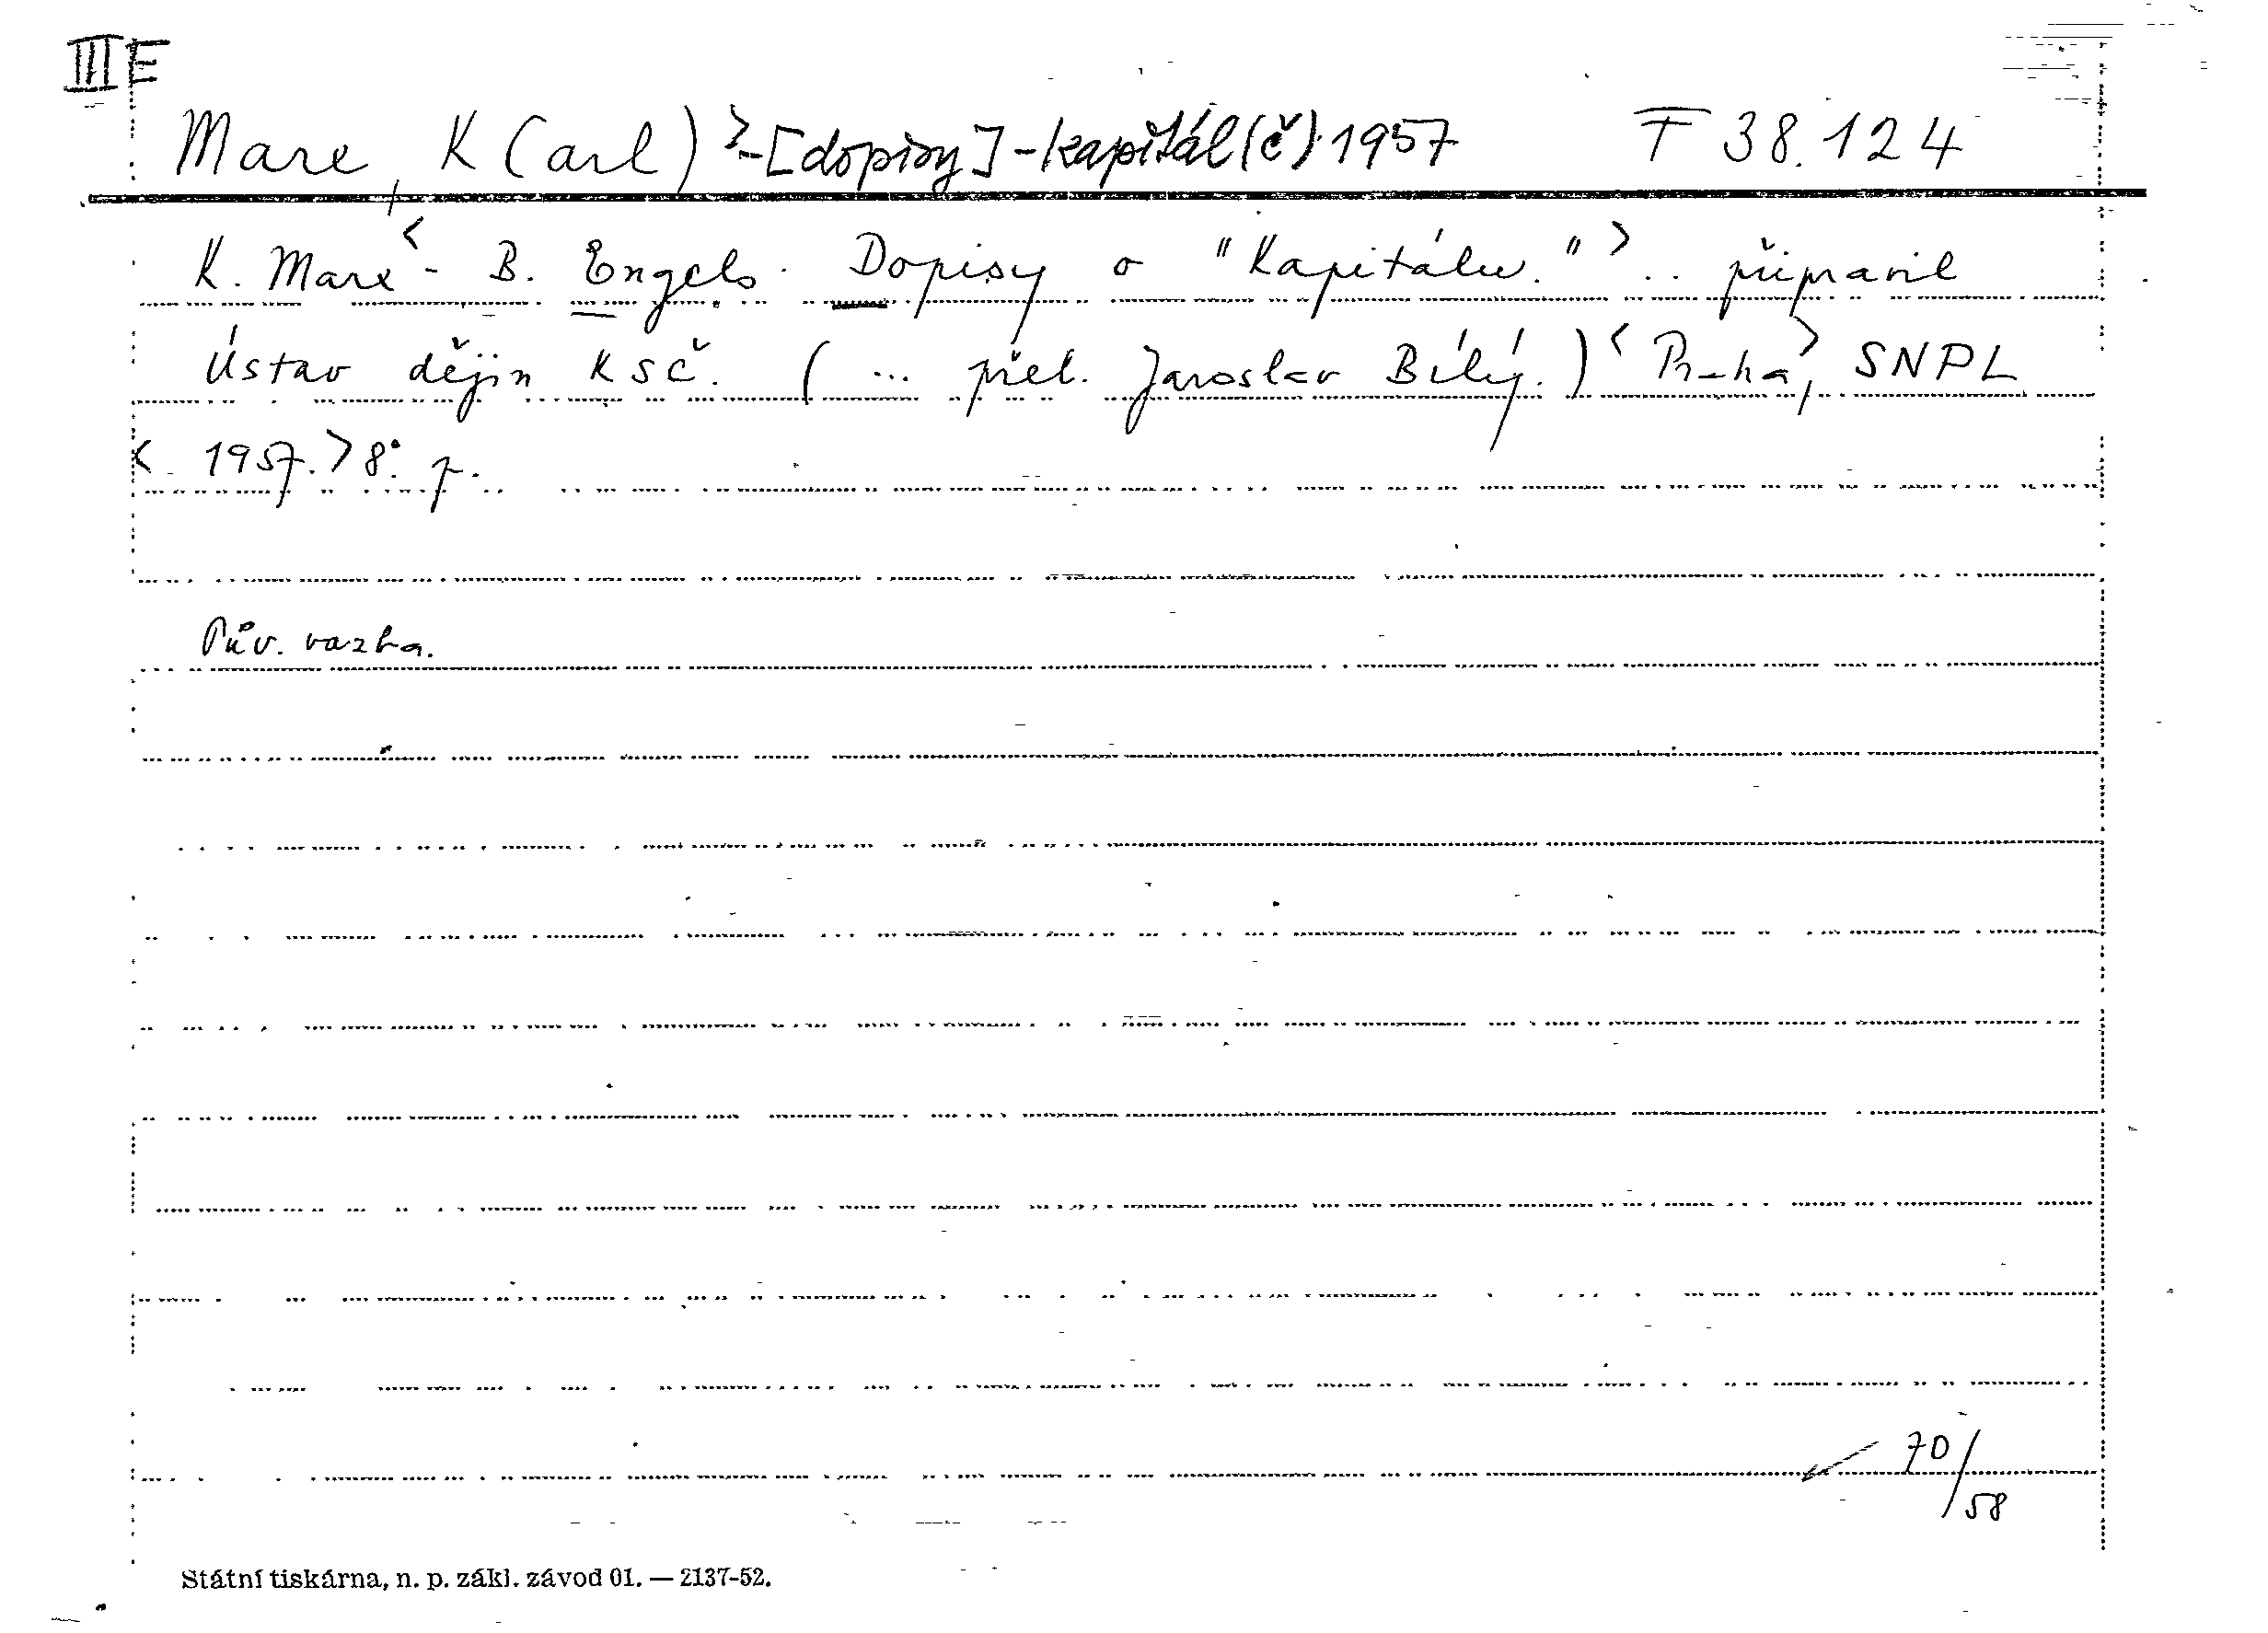 III E
Marx, K(arl) > - [dopisy] - kapitál (č) 1957 F 38.124
K. Marx < - B. Engels. Dopisy o "Kapitálu." > .. připravil
Ústav dějin KSČ. (... přel. Jaroslav Bílý.) < Praha >, SNPL
< 1957. > 8°. p.
Pův. vazba.
70/58
Státní tiskárna, n. p. zákl. závod 01. — 2137-52.